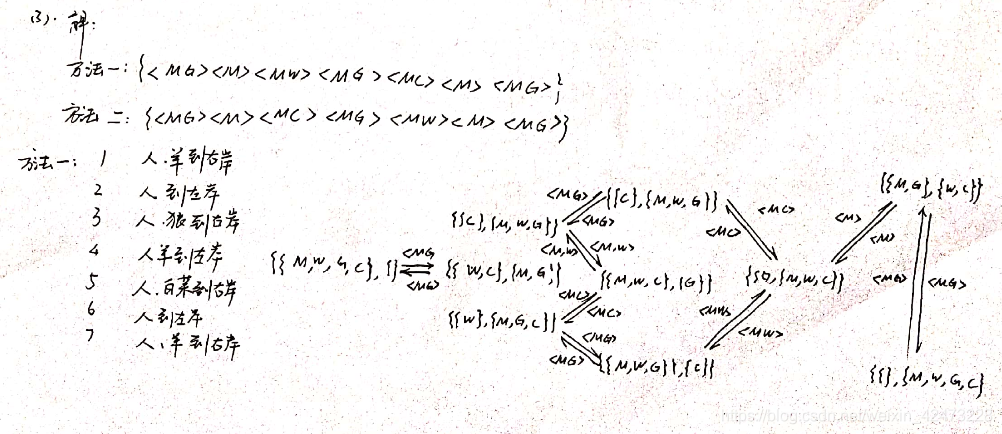 (3). 解:
方法一:{<MG><M><MW><MG><MC><M><MG>}
方法二:{<MG><M><MC><MG><MW><M><MG>}
方法一: 1 人.羊到右岸
2 人到左岸
3 人.狼到右岸
4 人羊到左岸
5 人.白菜到右岸
6 人到左岸
7 人、羊到右岸
{{M,W,G,C},{}
<MG
<MG>
{{W,C},{M,G}
{{C},{M,W,G}}
<MG>
<MG>
{{C},{M,W,G}}
<M,W>
<M,W>
{{M,W,C},{G}}
<MC>
<MC>
{{W},{M,G,C}}
<MG>
<MG>
{{M,W,G}},{C}}
<MC>
<MC>
{{G},{M,W,C}}
<MW>
<MW>
<M>
<M>
{{M,G},{W,C}}
<MG>
<MG>
{{},{M,W,G,C}